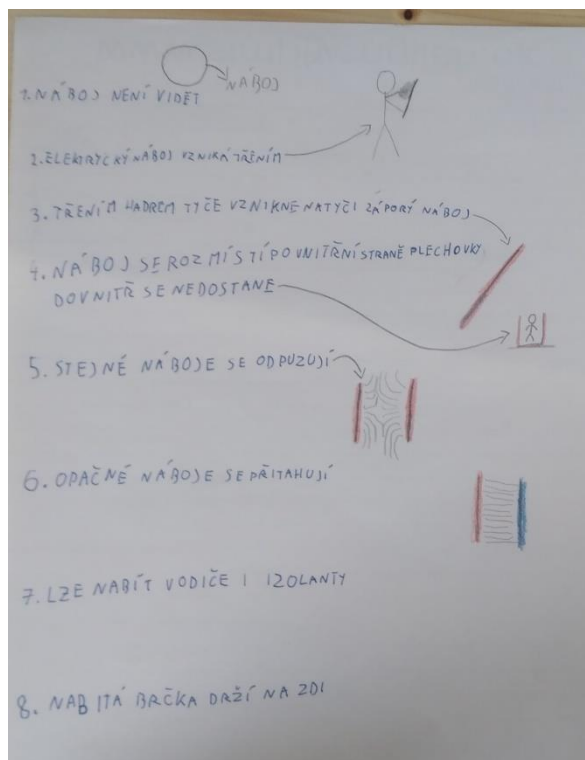 NÁBOJ
1. NÁBOJ NENÍ VIDĚT
2. ELEKTRICKÝ NÁBOJ VZNIKÁ TŘENÍM
3. TŘENÍM HADREM TYČE VZNIKNE NA TYČI ZÁPORÝ NÁBOJ
4. NÁBOJ SE ROZMÍSTÍ PO VNITŘNÍ STRANĚ PLECHOVKY
DOVNITŘ SE NEDOSTANE
5. STEJNÉ NÁBOJE SE ODPUZUJÍ
6. OPAČNÉ NÁBOJE SE PŘITAHUJÍ
7. LZE NABÍT VODIČE I IZOLANTY
8. NABITÁ BRČKA DRŽÍ NA ZDI